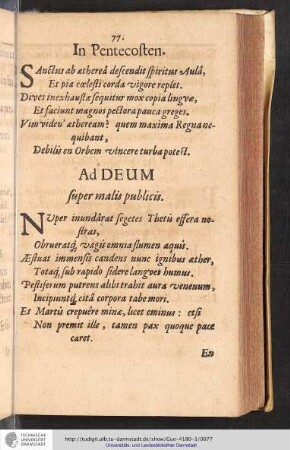 77.
In Pentecosten.
SAnctus ab æthereâ descendit spiritus Aulâ,
Et pia cœlesti corda vigore replet.
Dives inexhaustæ sequitur mox copia linguæ,
Et faciunt magnos pectora pauca greges.
Vim viden' ætheream? quem maxima Regna ne-
quibant,
Debilis en Orbem vincere turba potest.
Ad DEUM
super malis publicis.
NUper inundârat segetes Thetis effera no-
stras,
Obrueratq́; vagis omnia flumen aquis.
Æstuat immensis candens nunc ignibus æther,
Totaq́; sub rapido sidere langvet humus.
Pestiferum putrens alibi trahit aura venenum,
Incipiuntq́; citâ corpora tabe mori.
Et Martis crepuêre minæ, licet eminus: etsi
Non premit ille, tamen pax quoque pace
caret.
En
TECHNISCHE
UNIVERSITÄT
DARMSTADT
http://tudigit.ulb.tu-darmstadt.de/show/Gue-4180-3/0077
Universitäts- und Landesbibliothek Darmstadt